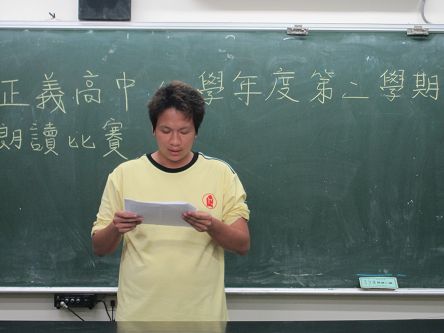 正義高中 學年度第二學期
朗讀比賽